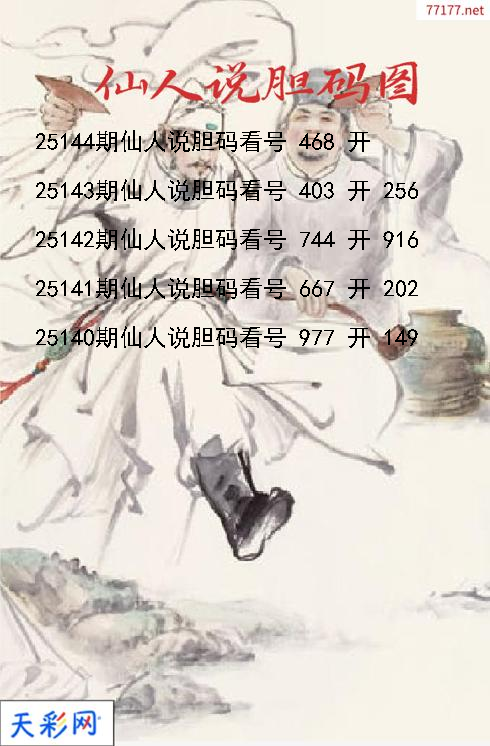 77177.net
仙人说胆码图
25144期仙人说胆码看号 468 开
25143期仙人说胆码看号 403 开 256
25142期仙人说胆码看号 744 开 916
25141期仙人说胆码看号 667 开 202
25140期仙人说胆码看号 977 开 149
天彩网